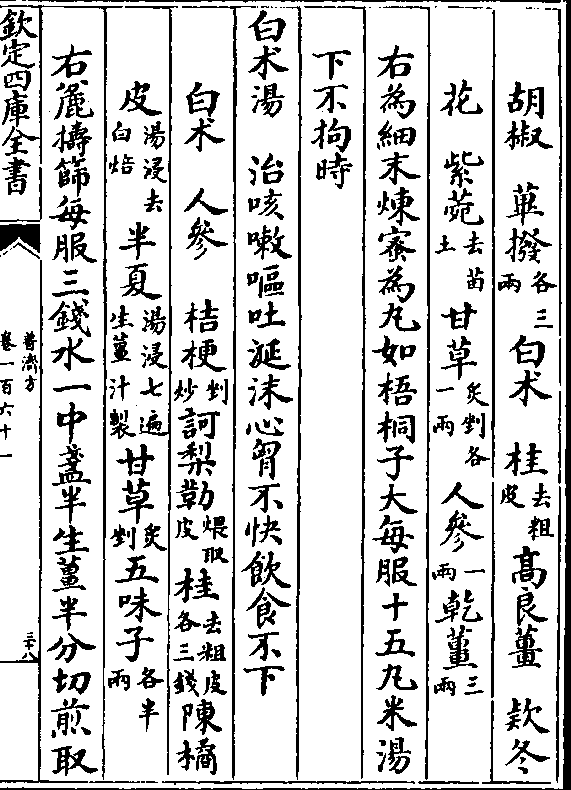 胡椒　蓽撥各三兩白术　桂去粗皮髙良薑　欵冬
花　紫菀去苗土甘草炙剉各一兩人參一兩乾薑三兩
右為細末煉蜜為丸如梧桐子大每服十五丸米湯
下不拘時
白术湯　治咳嗽嘔吐涎沫心胷不快飲食不下
白术　人參　桔梗剉炒訶梨勒煨取皮桂去粗皮各三錢陳橘
皮湯浸去白焙半夏湯浸七遍生薑汁製甘草炙剉五味子各半兩
右麄擣篩每服三錢水一中盞半生薑半分切煎取
欽定四庫全書
普濟方
卷一百六十一
三十八